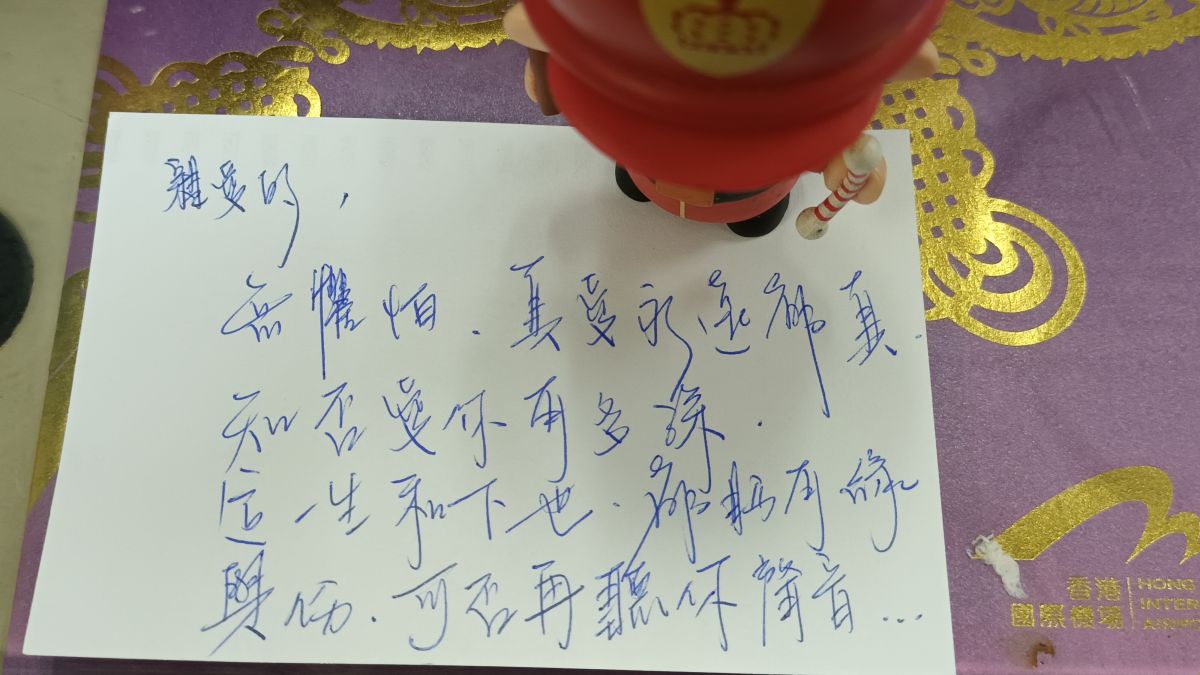 親愛的，
無懼怕．真愛永遠都真．
知否愛你有多深．
這一生和下世．都有緣
與份．可否再聽你聲音...
香港
國際機場
HONG
INTER